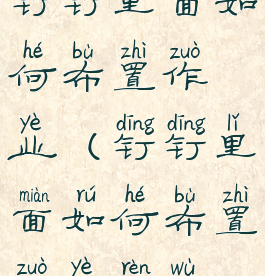 钉钉里面如
hé bù zhì zuò
何布置作
yè dīng dīng lǐ
业（钉钉里
miàn rú hé bù zhì
面如何布置
zuò yè rèn wù